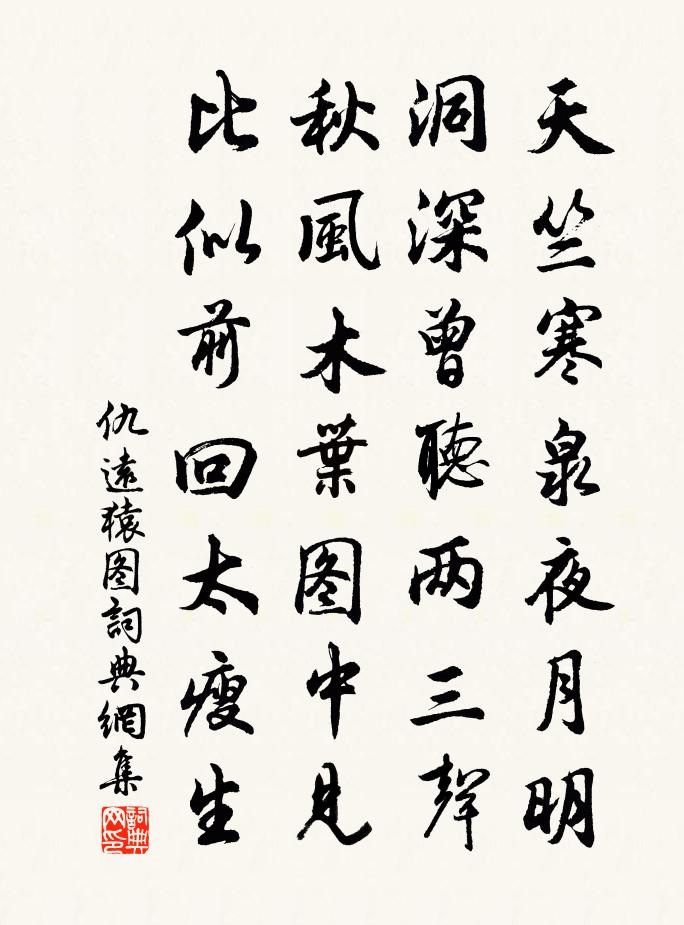 天竺寒泉夜月明
洞深曾聽两三聲
秋風木葉图中見
比似前回太瘦生
仇遠猿图詞典網集
詞典網印